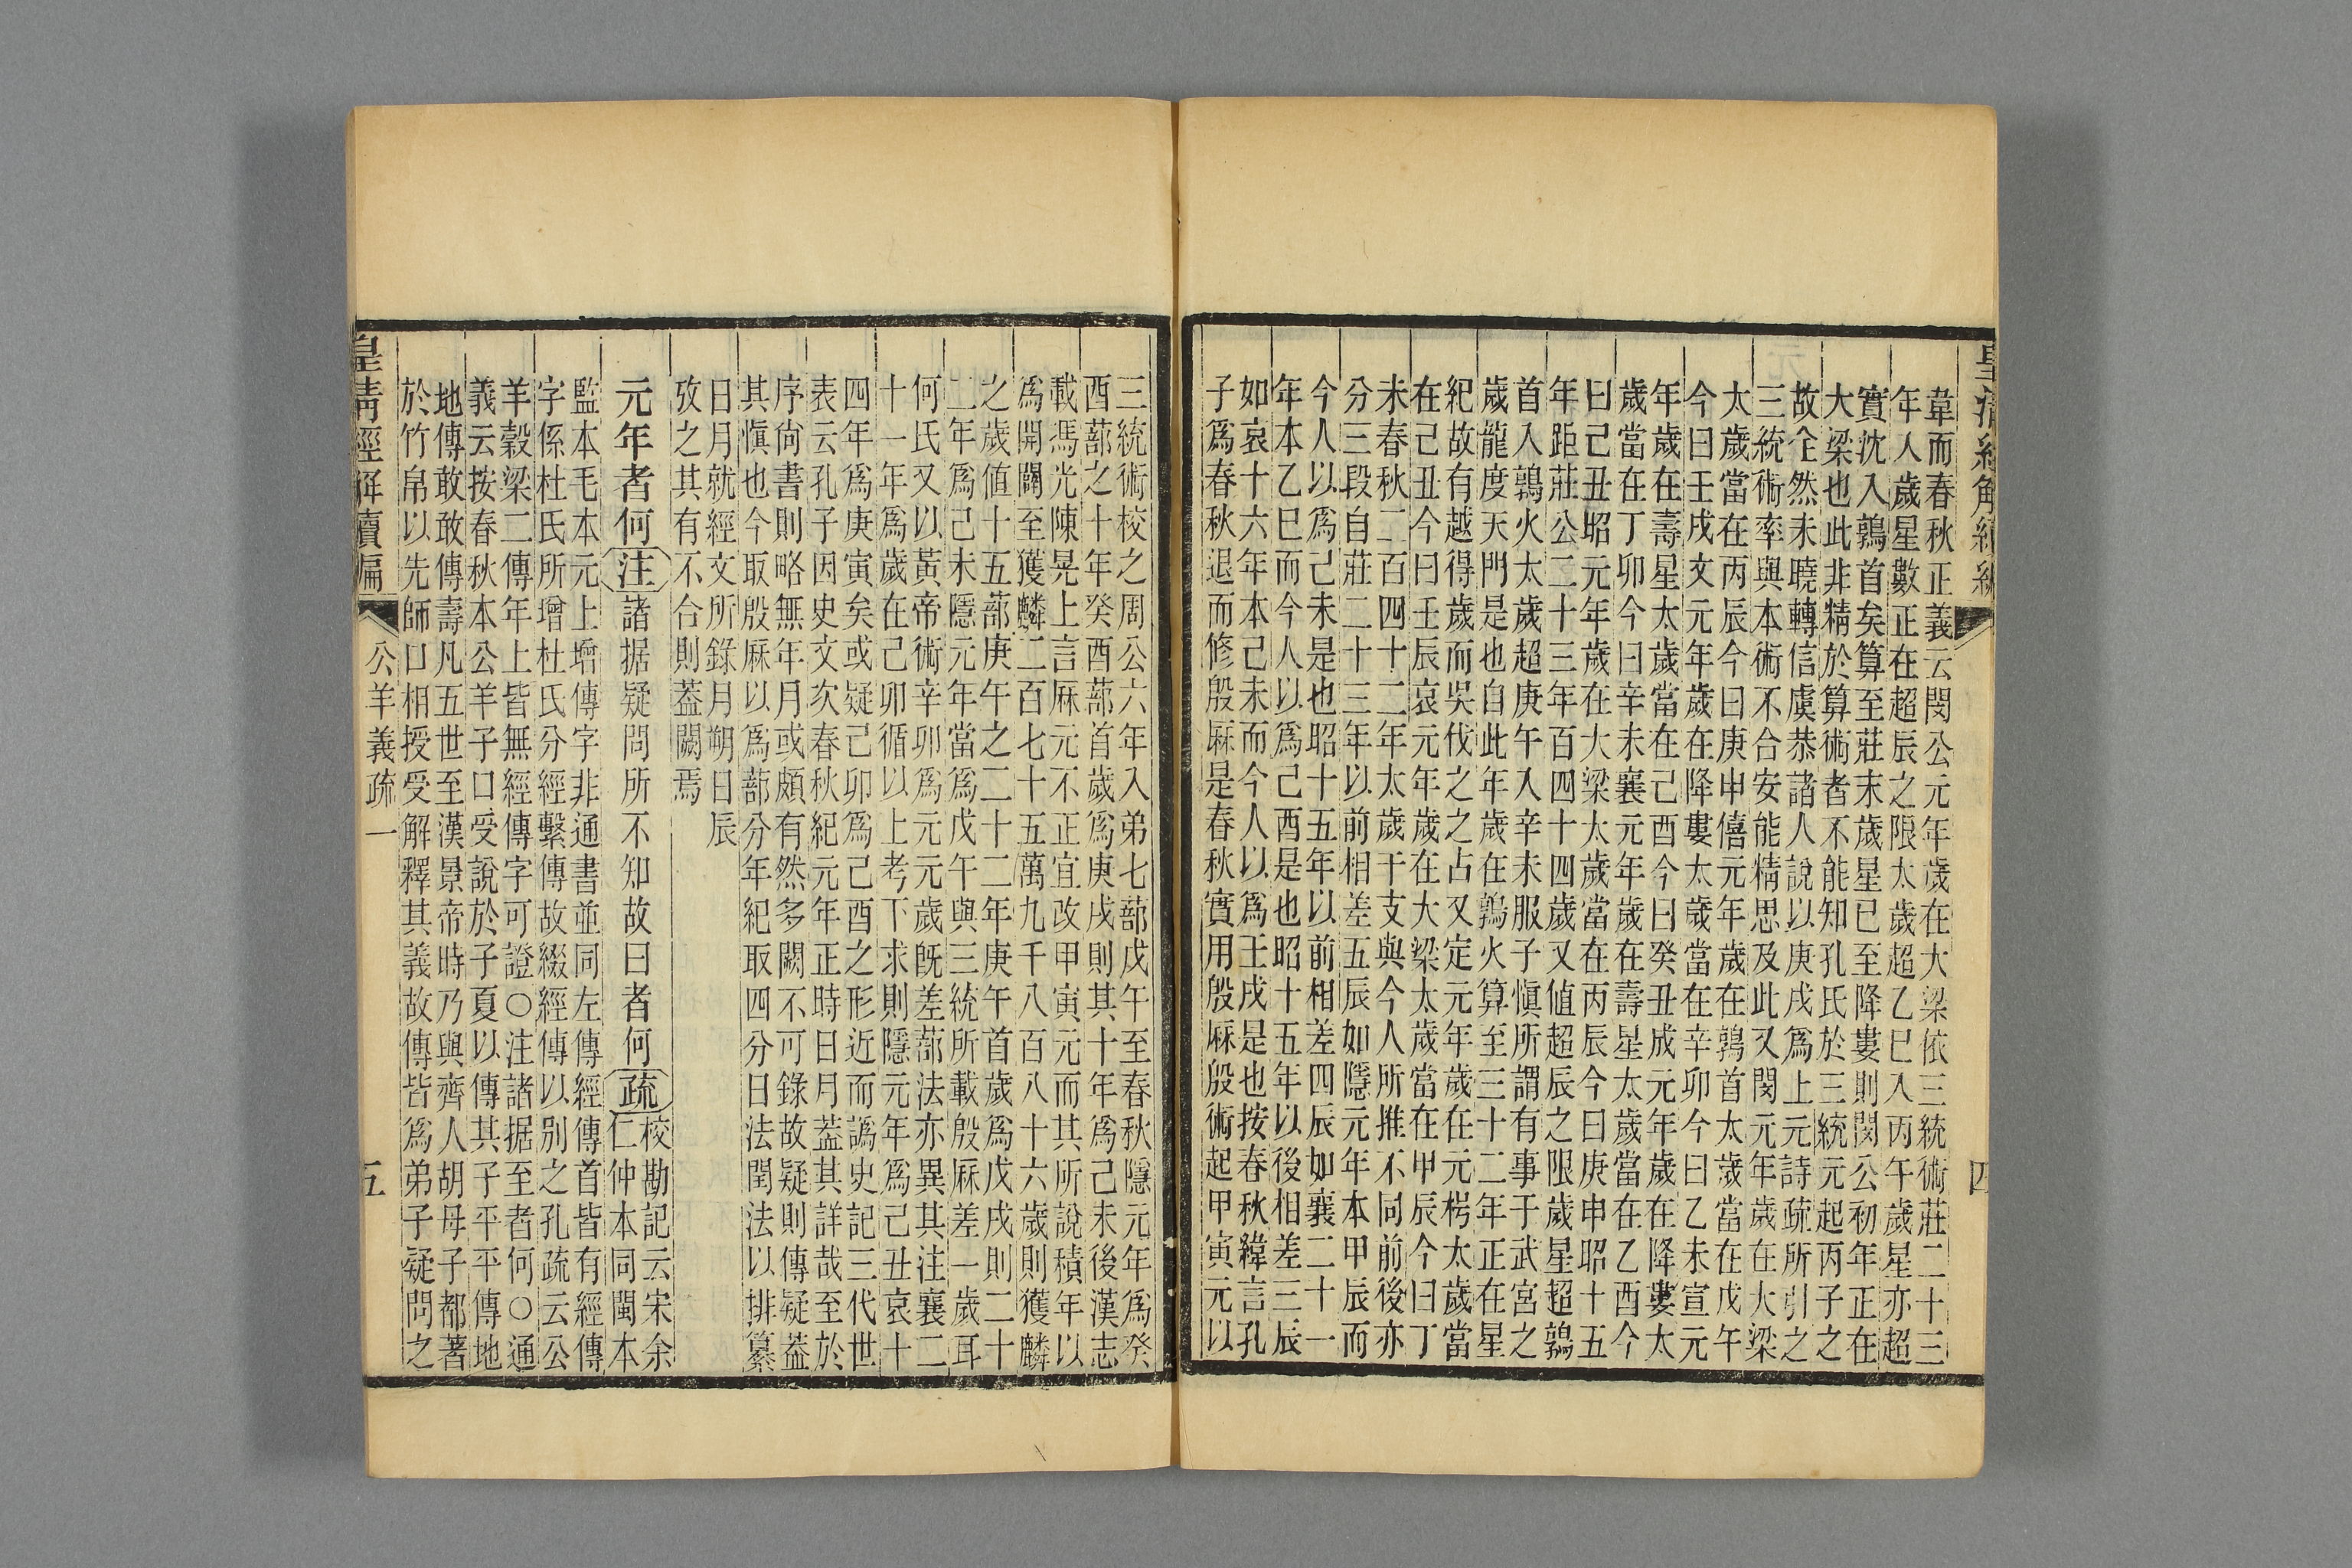 皇清經解續編
四
韋而春秋正義云閔公元年歲在大梁依三統術莊二十三
年人歲星數正在超辰之限太歲超乙巳入丙午歲星亦超
實沈入鶉首矣算至莊末歲星已至降婁則閔公初年正在
大梁也此非精於算術者不能知孔氏於三統元起丙子之
故仝然未曉轉信虞恭諸人說以庚戌爲上元詩疏所引之
三統術率與本術不合安能精思及此又閔元年歲在大梁
太歲當在丙辰今曰庚申僖元年歲在鶉首太歲當在戊午
今曰壬戌文元年歲在降婁太歲當在辛卯今曰乙未宣元
年歲在壽星太歲當在己酉今曰癸丑成元年歲在降婁太
歲當在丁卯今曰辛未襄元年歲在壽星太歲當在乙酉今
曰己丑昭元年歲在大梁太歲當在丙辰今曰庚申昭十五
年距莊公二十三年百四十四歲又值超辰之限歲星超鶉
首入鶉火太歲超庚午入辛未服子愼所謂有事于武宮之
歲龍度天門是也自此年歲在鶉火算至三十二年正在星
紀故有越得歲而吳伐之之占又定元年歲在元枵太歲當
在己丑今曰壬辰哀元年歲在大梁太歲當在甲辰今曰丁
未春秋二百四十二年太歲干支與今人所推不同前後亦
分三段自莊二十三年以前相差五辰如隱元年本甲辰而
今人以爲己未是也昭十五年以前相差四辰如襄二十一
年本乙巳而今人以爲己酉是也昭十五年以後相差三辰
如哀十六年本己未而今人以爲壬戌是也按春秋緯言孔
子爲春秋退而修殷厤是春秋實用殷厤殷術起甲寅元以
三統術校之周公六年入弟七蔀戊午至春秋隱元年爲癸
酉蔀之十年癸酉蔀首歲爲庚戌則其十年爲己未後漢志
載馮光陳晃上言厤元不正宜改甲寅元而其所說積年以
爲開闢至獲麟二百七十五萬九千八百八十六歲則獲麟
之歲値十五蔀庚午之二十二年庚午首歲爲戊戌則二十
二年爲己未隱元年當爲戊午與三統所載殷厤差一歲耳
何氏又以黃帝術辛卯爲元元歲旣差蔀法亦異其注襄二
十一年爲歲在己卯循以上考下求則隱元年爲己丑哀十
四年爲庚寅矣或疑己卯爲己酉之形近而譌史記三代世
表云孔子因史文次春秋紀元年正時日月蓋其詳哉至於
序尙書則略無年月或頗有然多闕不可錄故疑則傳疑蓋
其愼也今取殷厤以爲蔀分年紀取四分日法閏法以排纂
日月就經文所錄月朔日辰
攷之其有不合則蓋闕焉
元年者何注諸据疑問所不知故曰者何疏校勘記云宋余
仁仲本同閩本
監本毛本元上增傳字非通書並同左傳經傳首皆有經傳
字係杜氏所增杜氏分經繫傳故綴經傳以別之孔疏云公
羊穀梁二傳年上皆無經傳字可證○注諸据至者何○通
義云按春秋本公羊子口受說於子夏以傳其子平平傳地
地傳敢敢傳壽凡五世至漢景帝時乃與齊人胡母子都著
於竹帛以先師口相授受解釋其義故傳皆爲弟子疑問之
皇清經解續編
公羊義疏一
五